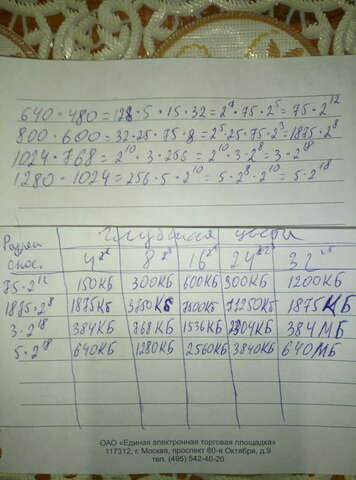 640 · 480 = 128 · 5 · 15 · 32 = 2⁷ · 75 · 2⁵ = 75 · 2¹²
800 · 600 = 32 · 25 · 75 · 8 = 2⁵ · 25 · 75 · 2³ = 1875 · 2⁸
1024 · 768 = 2¹⁰ · 3 · 256 = 2¹⁰ · 3 · 2⁸ = 3 · 2¹⁸
1280 · 1024 = 256 · 5 · 2¹⁰ = 5 · 2⁸ · 2¹⁰ = 5 · 2¹⁸
Глубина цвета
4 8 16 24 32
75 · 2¹² 150КБ 300КБ 600КБ 900КБ 1200КБ
1875 · 2⁸ 1875КБ 7500КБ 1875
3 · 2¹⁸ 384КБ 768КБ 1536КБ 384МБ
5 · 2¹⁸ 640КБ 1280КБ 2560КБ 3840КБ 640МБ
ОАО «Единая электронная торговая площадка»
117312, г. Москва, проспект 60-я Октября, д.9
тел. (495) 542-40-20